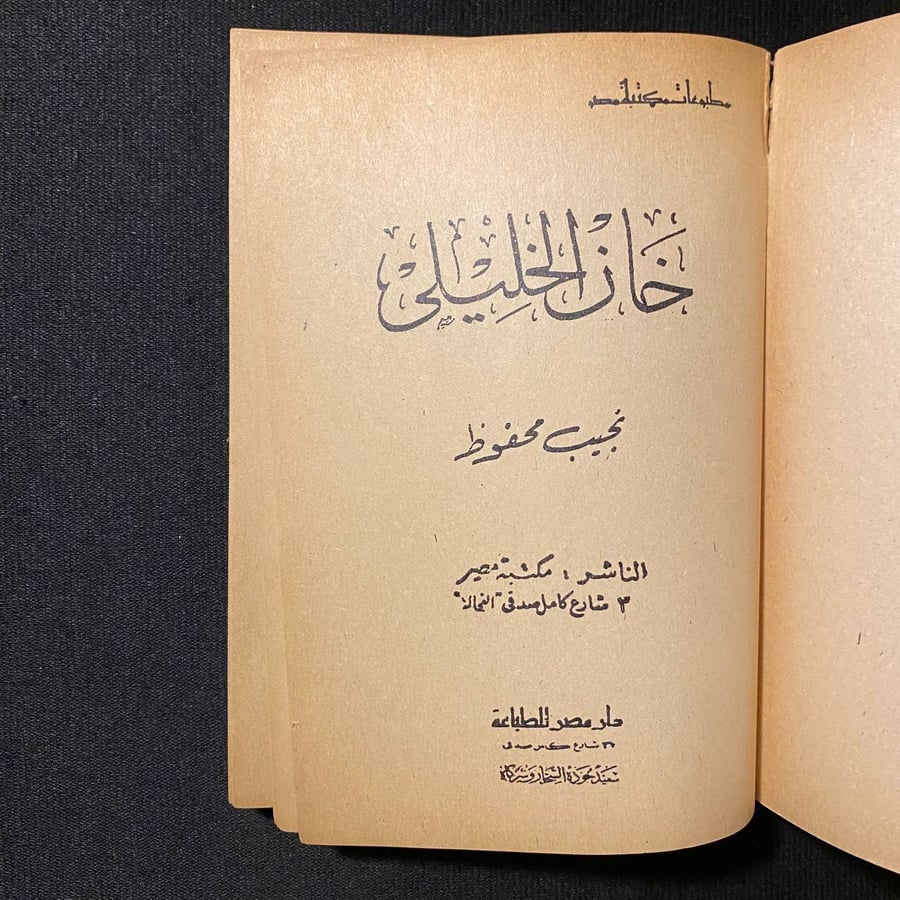 مطبوعات مكتبة مصر
خان الخليلي
نجيب محفوظ
الناشر : مكتبة مصر
٣ شارع كامل صدقى "الفجالة"
دار مصر للطباعة
٣٧ شارع كامل صدقى
سعيد جودة السحار وشركاه